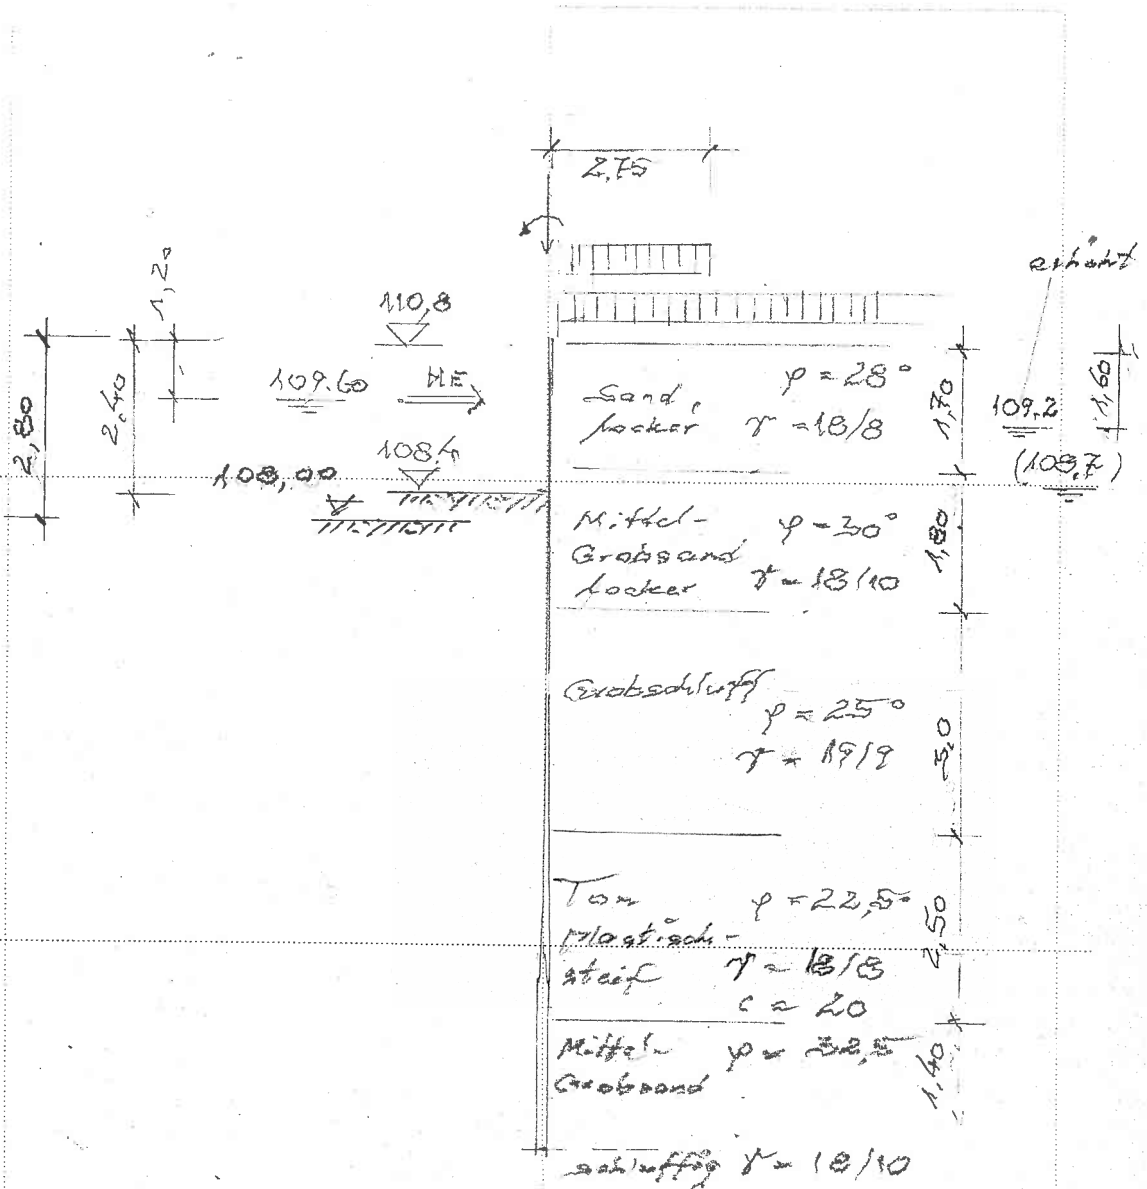 2,75
erhöht
1,20
110,8
109.60
HE
2,40
2,80
108.4
108,00
Sand,
locker
φ = 28°
γ = 18/8
1,70
109.2
1,60
(108,7)
Mittel-
Grobsand
locker
φ = 30°
γ = 18/10
1,80
Grobschluff
φ = 25°
γ = 19/9
3,0
Ton
plastisch-
steif
φ = 22,5°
γ = 18/8
c = 20
2,50
Mittel-
Grobsand
φ = 32,5
1,40
schluffig γ = 18/10